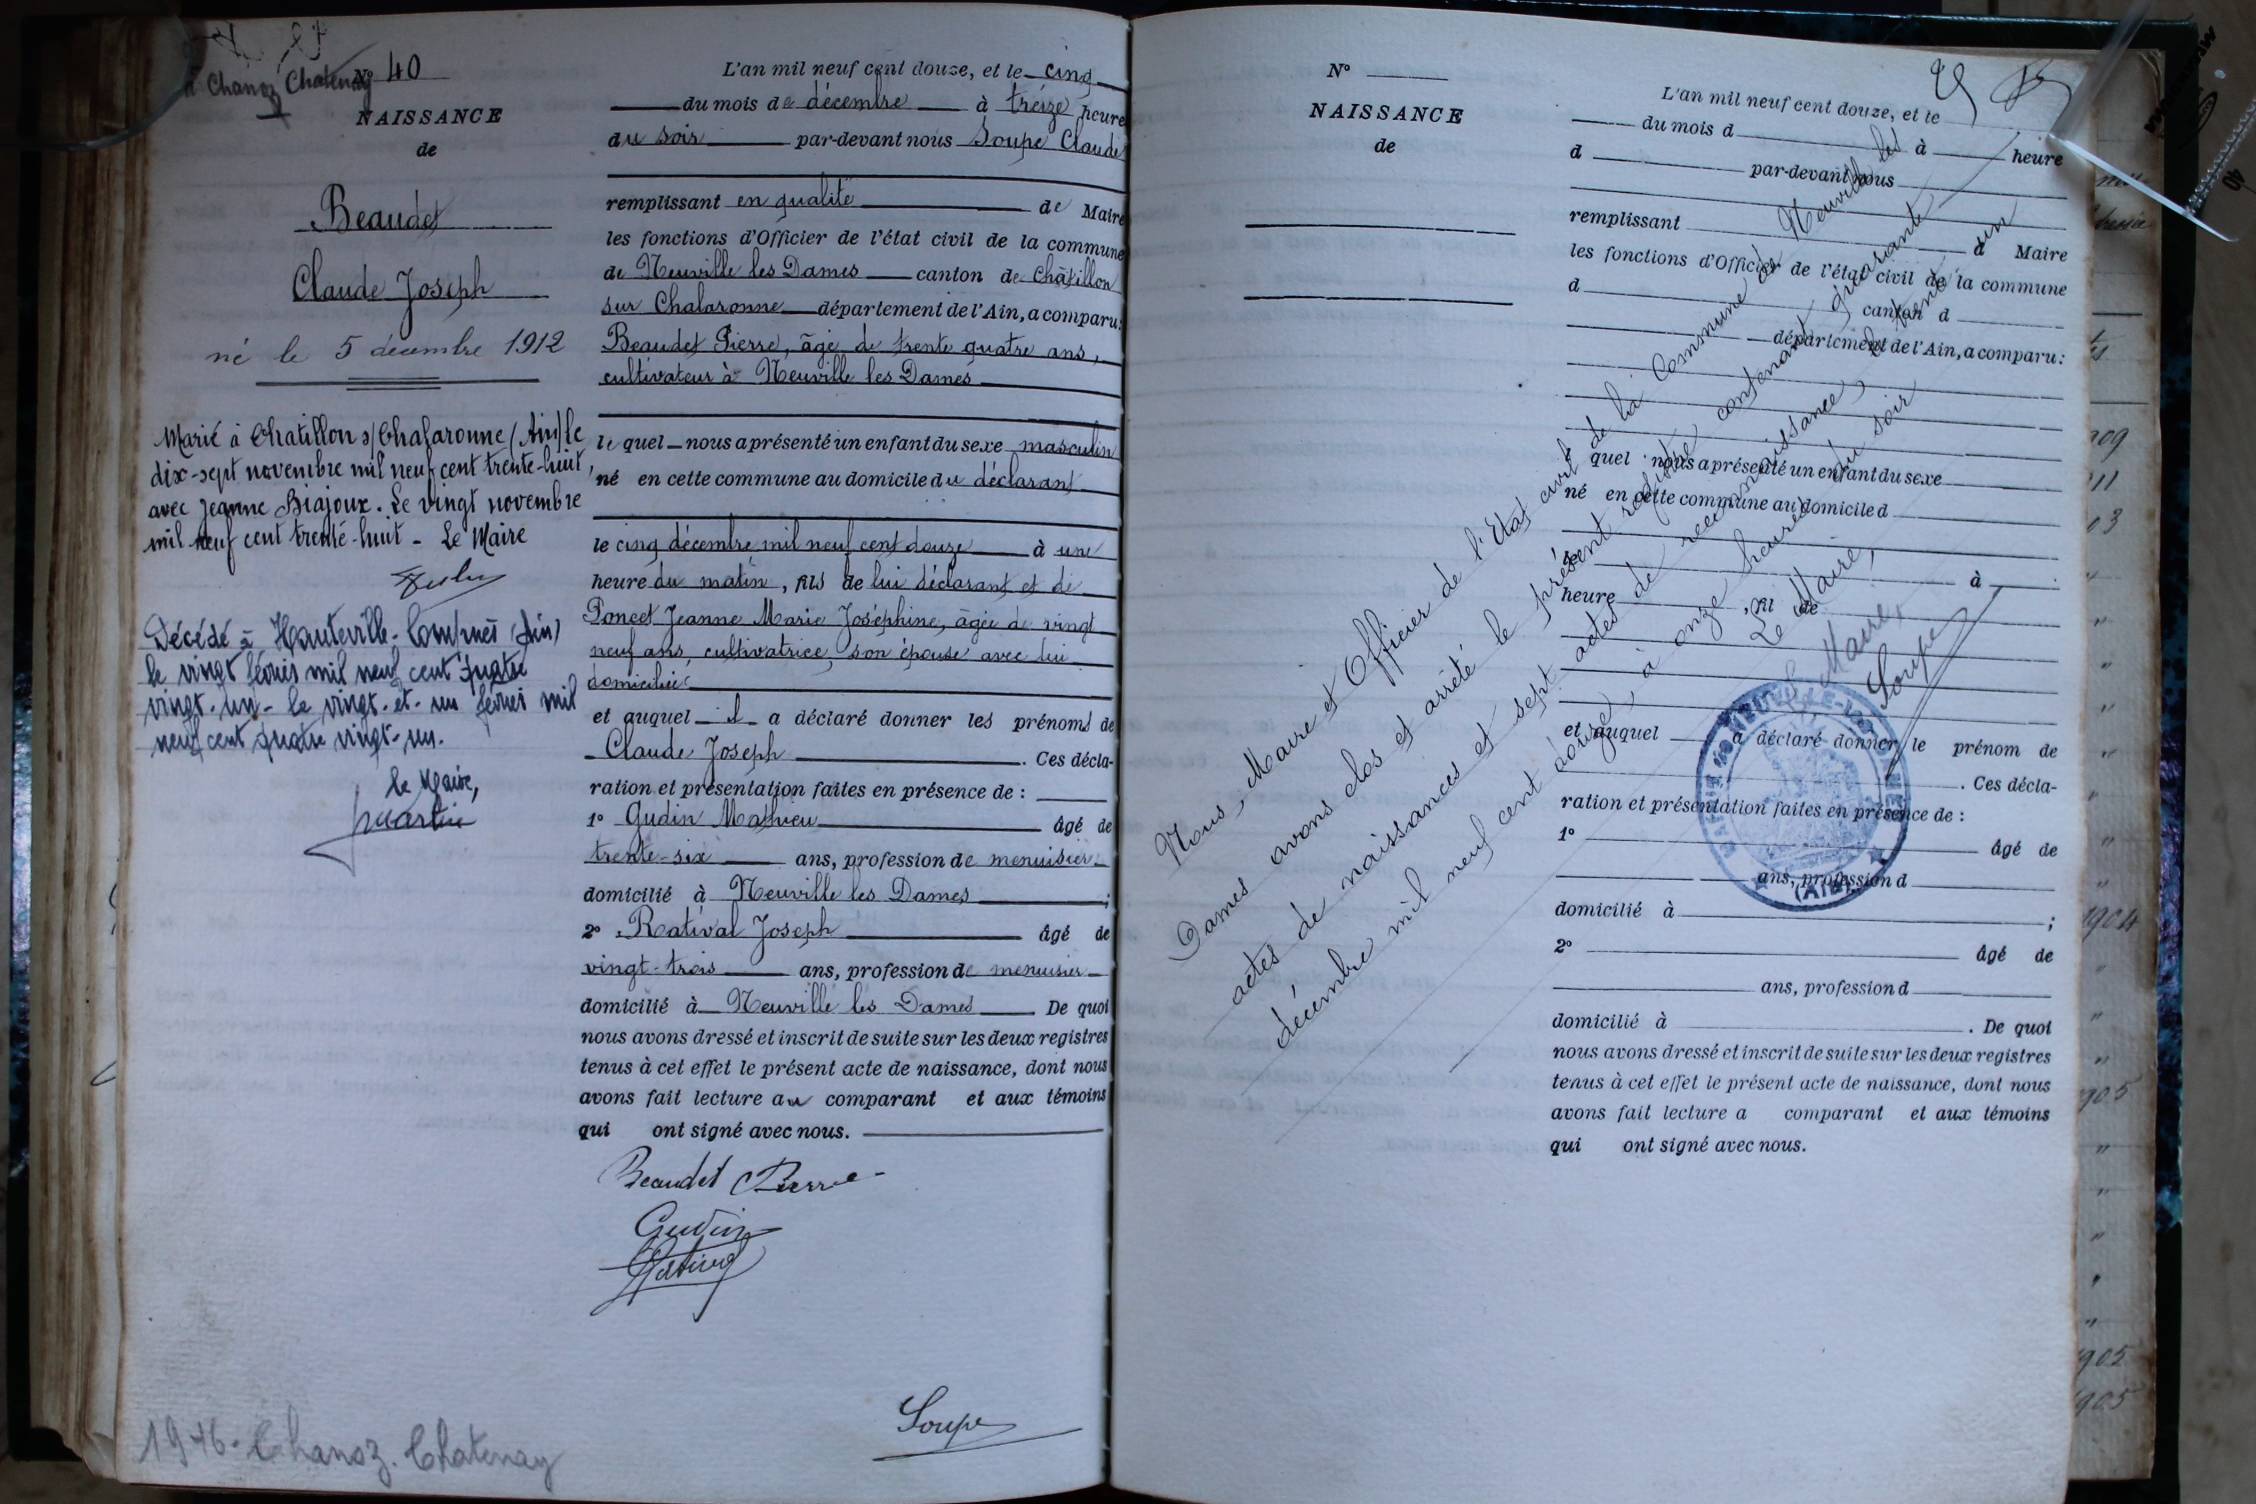 à Chanoz Chatenay
N° 40
NAISSANCE
de
Beaudet
Claude Joseph
né le 5 décembre 1912
Marié à Chatillon s/Chalaronne (Ain) le
dix-sept novembre mil neuf cent trente-huit,
avec Jeanne Biajoux. Le vingt novembre
mil neuf cent trente-huit - Le Maire
Décédé à Hauteville-Lompnes (Ain)
le vingt février mil neuf cent quatre
vingt-un - le vingt-et-un février mil
neuf cent quatre vingt-un.
Le Maire,
1946 - Chanoz. Chatenay
L'an mil neuf cent douze, et le cinq
du mois de décembre à treize heure
du soir par-devant nous Soupe Claude
remplissant en qualité de Maire
les fonctions d'Officier de l'état civil de la commune
de Neuville les Dames canton de Châtillon
sur Chalaronne département de l'Ain, a comparu:
Beaudet Pierre, âgé de trente quatre ans,
cultivateur à Neuville les Dames
le quel nous a présenté un enfant du sexe masculin
né en cette commune au domicile du déclarant
le cinq décembre mil neuf cent douze à une
heure du matin, fils de lui déclarant et de
Poncet Jeanne Marie Joséphine, âgée de vingt
neuf ans, cultivatrice, son épouse avec lui
domiciliée
et auquel il a déclaré donner les prénoms de
Claude Joseph. Ces décla-
ration et présentation faites en présence de :
1° Gudin Mathieu âgé de
trente-six ans, profession de menuisier
domicilié à Neuville les Dames ;
2° Ratival Joseph âgé de
vingt-trois ans, profession de menuisier
domicilié à Neuville les Dames De quoi
nous avons dressé et inscrit de suite sur les deux registres
tenus à cet effet le présent acte de naissance, dont nous
avons fait lecture au comparant et aux témoins
qui ont signé avec nous.
Beaudet Pierre
Gudin
Ratival
Soupe
N°
NAISSANCE
de
L'an mil neuf cent douze, et le
du mois d à heure
d par-devant nous
remplissant d Maire
les fonctions d'Officier de l'état civil de la commune
d canton d
département de l'Ain, a comparu:
quel nous a présenté un enfant du sexe
né en cette commune au domicile d
le à
heure , fil de
et auquel a déclaré donner le prénom de
. Ces décla-
ration et présentation faites en présence de :
1° âgé de
ans, profession d
domicilié à ;
2° âgé de
ans, profession d
domicilié à . De quoi
nous avons dressé et inscrit de suite sur les deux registres
tenus à cet effet le présent acte de naissance, dont nous
avons fait lecture a comparant et aux témoins
qui ont signé avec nous.
Nous, Maire et Officier de l'Etat civil de la Commune de Neuville les
Dames avons clos et arrêté le présent registre contenant quarante
actes de naissances et sept actes de reconnaissance, le trente un
décembre mil neuf cent douze, à onze heures du soir
Le Maire,
Le Maire,
Soupe
(AIN)
1904
1905
1905
1905